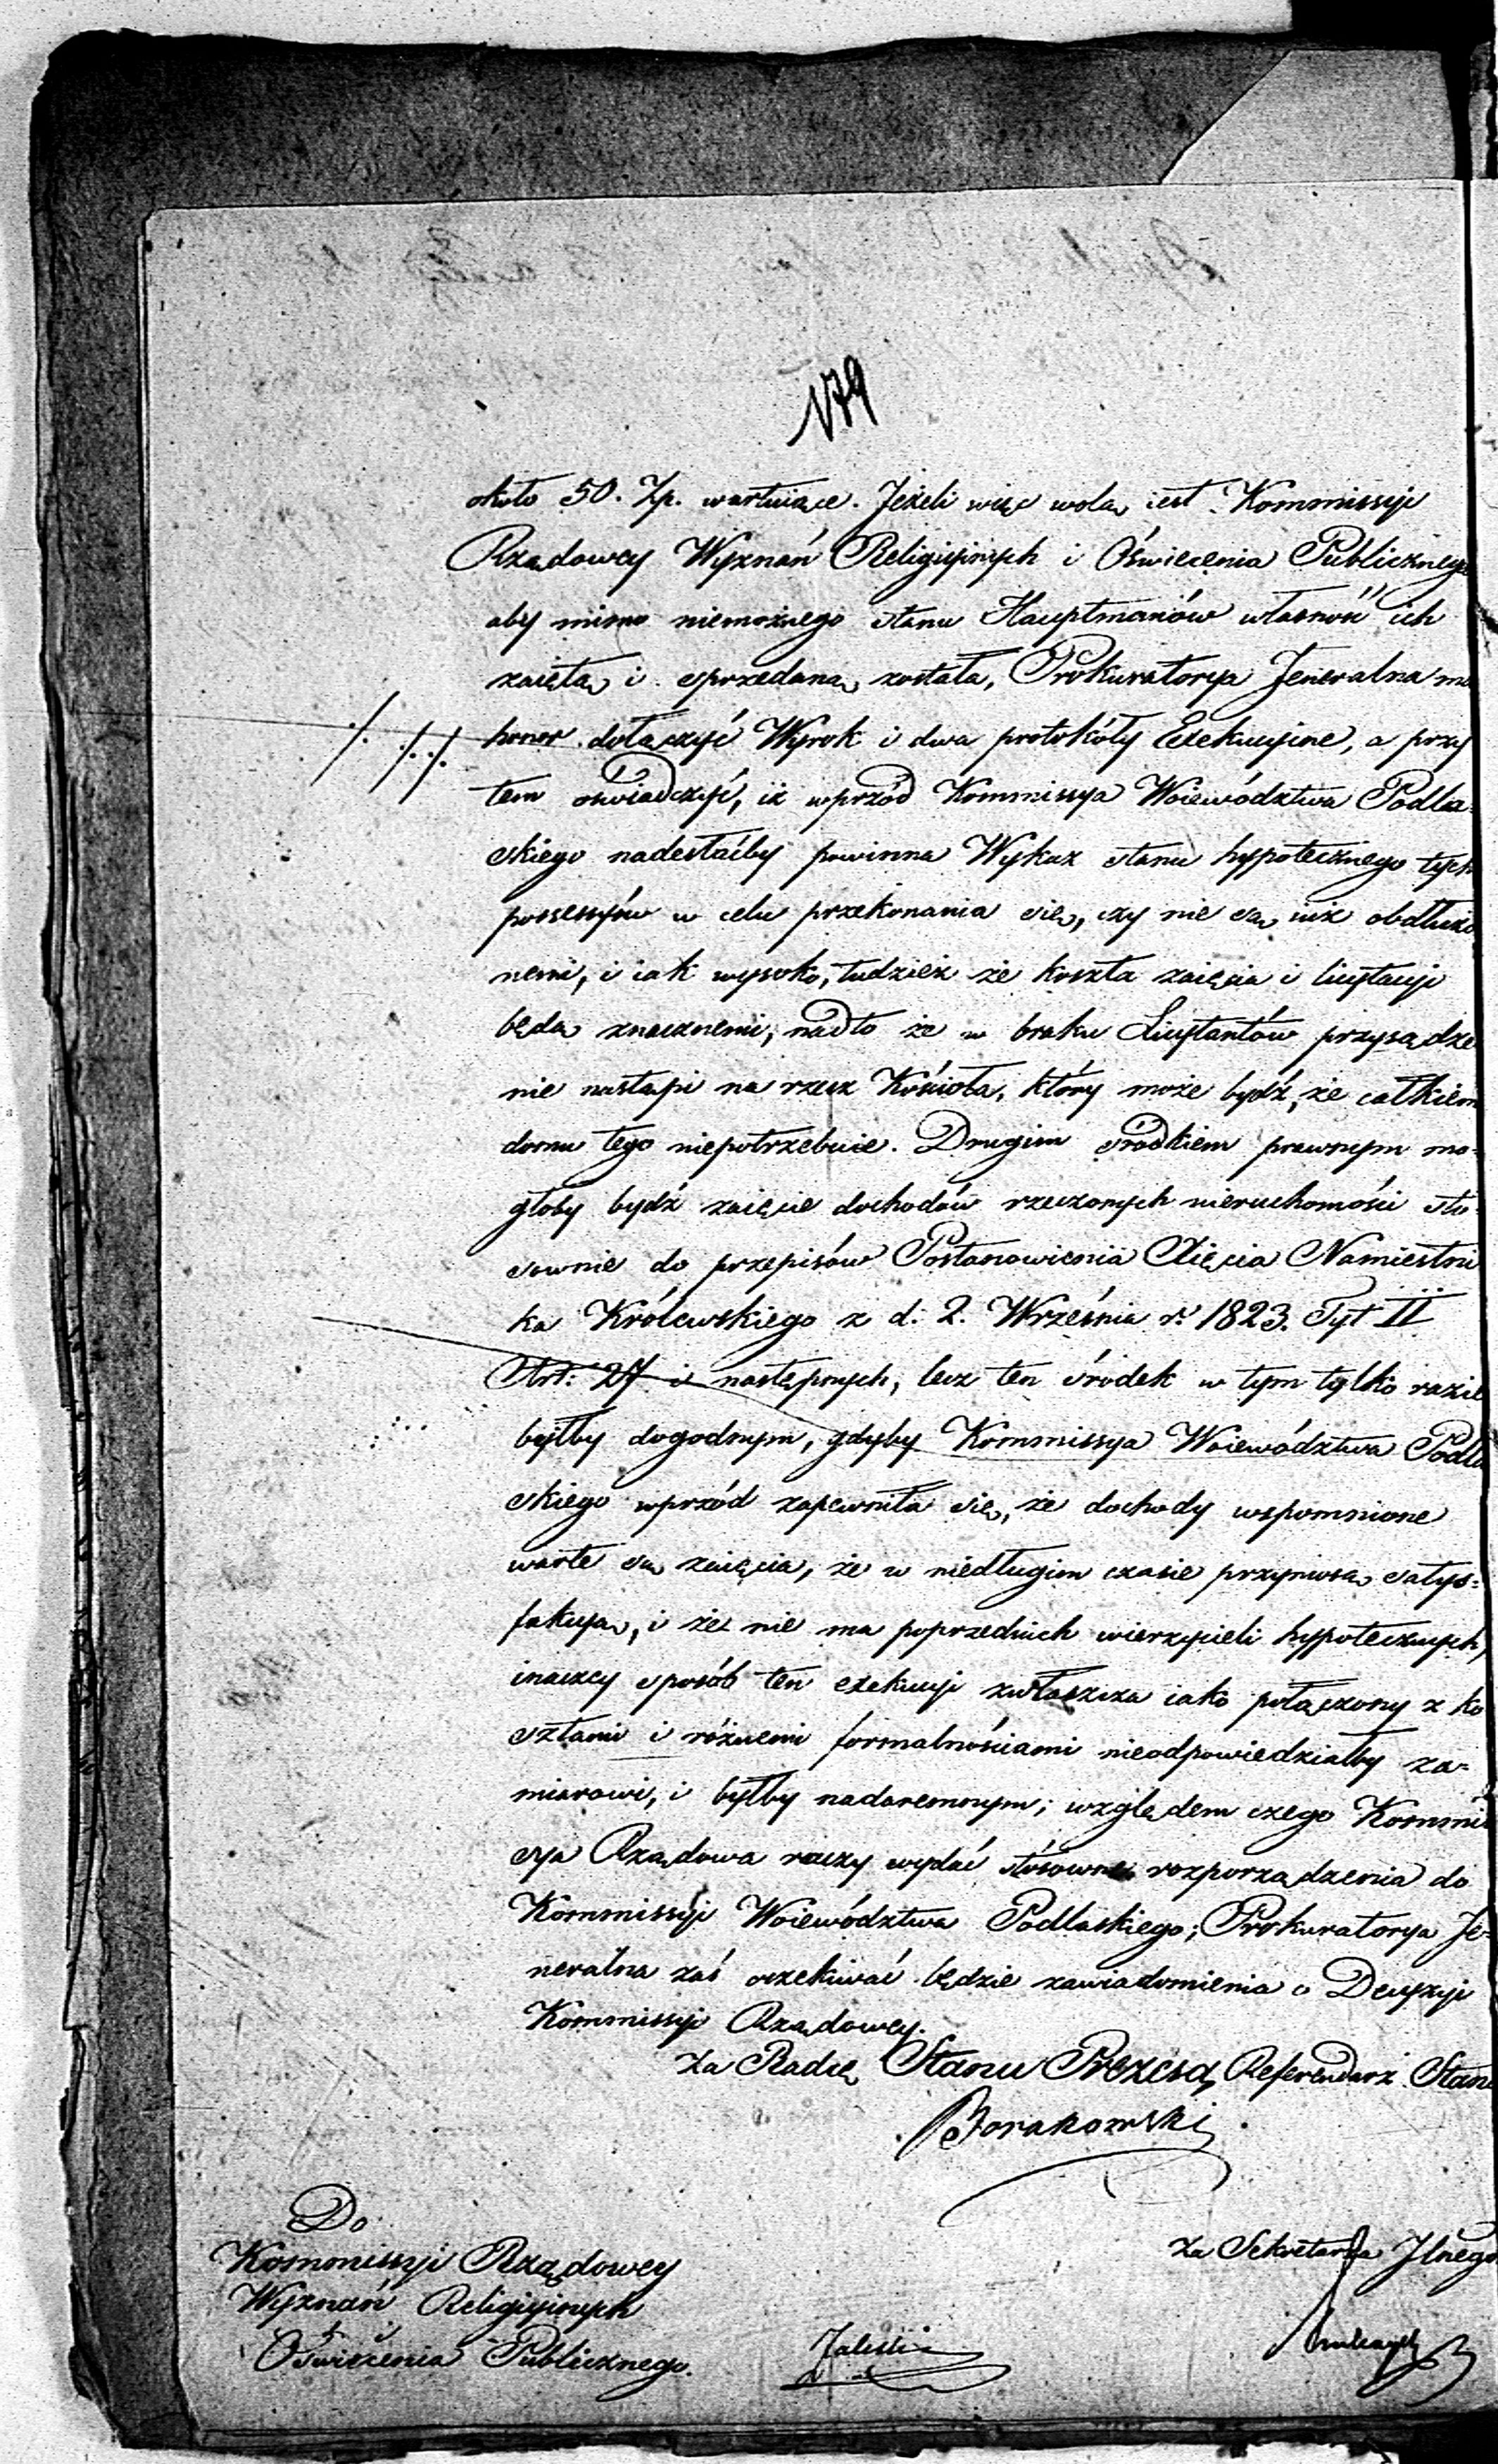 179
około 50. Zp. wartuiące. Jeżeli więc wolą iest Kommissyi
Rządowey Wyznań Religijnych i Oświecenia Publicznego
aby mimo niemożnego stanu Hauptmanów własność ich
zaiętą i sprzedaną została, Prokuratorya Jeneralna ma
honor dołączyć Wyrok i dwa protokóły Exekucyine, a przy
tem oświadczyć, iż wprzód Kommissya Woiewództwa Podla-
skiego nadesłaćby powinna Wykaz stanu hypotecznego tych
possessyów w celu przekonania się, czy nie są iuż obdłużo
nemi, i iak wysoko, tudzież że koszta zaięcia i licytacyi
będą znacznemi, nadto że w braku Licytantów przysądze
nie nastąpi na rzecz Kościoła, który może bydź, że całkiem
domu tego niepotrzebuie. Drugim środkiem prawnym mo-
głoby bydź zaięcie dochodów rzeczonych nieruchomości sto-
sownie do przepisów Postanowienia Xięcia Namiestni
ka Królewskiego z d. 2. Września r. 1823. Tyt II
Art: 27 i następnych, lecz ten środek w tym tylko razie
byłby dogodnym, gdyby Kommissya Woiewództwa Podla
skiego wprzód zapewniła się, że dochody wspomnione
warte są zaięcia, że w niedługim czasie przyniosą satys=
fakcyą, i że nie ma poprzednich wierzycieli hypotecznych,
inaczey sposób ten exekucyi zwłaszcza iako połączony z ko
sztami i różnemi formalnościami nieodpowiedziałby za=
miarowi, i byłby nadaremnym; względem czego Kommis
sya Rządowa raczy wydać stósowne rozporządzenia do
Kommissyi Woiewództwa Podlaskiego; Prokuratorya Je=
neralna zaś oczekiwać będzie zawiadomienia o Decyzyi
Kommissyi Rządowey.
za Radcę Stanu Prezesa, Referendarz Stanu
Borakowski
Do
Kommissyi Rządowey
Wyznań Religijnych
i
Oświecenia Publicznego.
za Sekretarza Jlnego
Zaleski